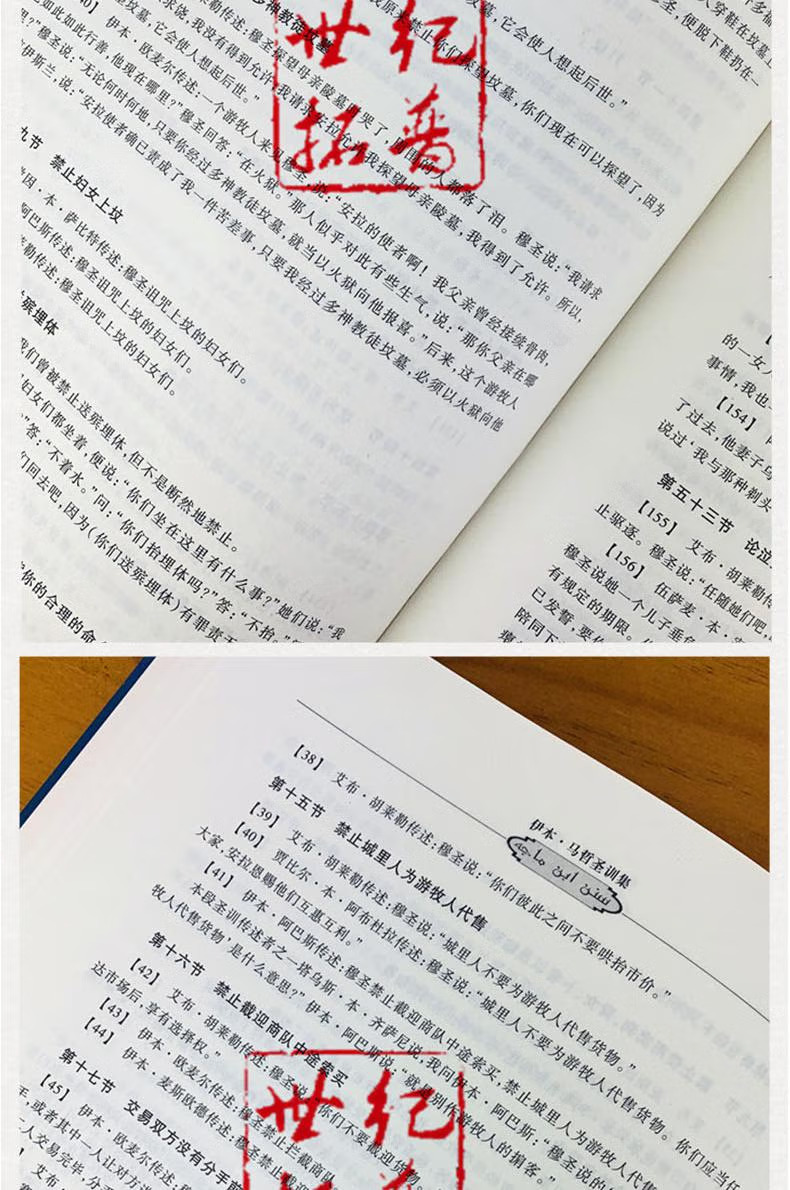 禁止你们探望坟墓，你们现在可以探望了，因为
坟墓，它会使人想起后世。”
多神教徒坟墓
莱勒传述：穆圣探望母亲陵墓时哭了，周围的人都落了泪。穆圣说：“我请求
求饶，我没有得到允许，我请求安拉允许我探望母亲陵墓，我得到了允许。所以，
坟墓，它会使人想起后世。”
伊本·欧麦尔传述：一个游牧人来见穆圣，说：“安拉的使者啊！我父亲曾经接续骨肉，
如此如此行善，他现在哪里？”穆圣回答：“在火狱。”那人似乎对此有些生气，说：“那你父亲在哪
说：“无论何时何地，只要你经过多神教徒坟墓，就当以火狱向他报喜。”后来，这个游牧人
伊斯兰，说：“安拉使者确已责成了我一件苦差事，只要我经过多神教徒坟墓，必须以火狱向他
九节 禁止妇女上坟
因·本·萨比特传述：穆圣诅咒上坟的妇女们。
阿巴斯传述：穆圣诅咒上坟的妇女们。
莱勒传述：穆圣诅咒上坟的妇女们。
殡埋体
我们曾被禁止送殡埋体，但不是断然地禁止。
妇女们都坐着，便说：“你们坐在这里有什么事？”她们说：“我
答：“不着水。”问：“你们抬埋体吗？”答：“不抬。”
们回去吧，因为（你们送殡埋体）有罪责
你的合理的命
的一女人
事情，我也
【154】
了过去，他妻子
说过‘我与那种剃头
第五十三节 论泣
【155】 艾布·胡莱勒传
止驱逐。穆圣说：“任随她们吧，
【156】 伍萨麦·本·
穆圣说她一个儿子垂
有规定的期限。
已发誓，要
陪同下
世纪
拓普
伊本·马哲圣训集
سنن ابن ماجه
【38】 艾布·胡莱勒传述：穆圣说：“你们彼此之间不要哄抬市价。”
第十五节 禁止城里人为游牧人代售
【39】 艾布·胡莱勒传述：穆圣说：“城里人不要为游牧人代售货物。”
【40】 贾比尔·本·阿布杜拉传述：穆圣说：“城里人不要为游牧人代售货物。你们应当任
大家，安拉恩赐他们互惠互利。”
【41】 伊本·阿巴斯传述：穆圣禁止截迎商队中途索买，禁止城里人为游牧人代售
本段圣训传述者之一塔乌斯·本·齐萨尼说：我问伊本·阿巴斯：“穆圣说的
牧人代售货物’，是什么意思？”伊本·阿巴斯说：“就是别作游牧人的掮客。”
第十六节 禁止截迎商队中途索买
【42】 艾布·胡莱勒传述：穆圣说：“你们不要截迎货物。
达市场后，享有选择权。”
【43】 伊本·欧麦尔传述：穆圣禁止拦截商队
【44】 伊本·麦斯欧德传述：穆圣禁止截迎
第十七节 交易双方没有分手前
【45】 伊本·欧麦尔传述：穆
手，或者其中一人让对方
人交易完毕，分
艾布
世纪